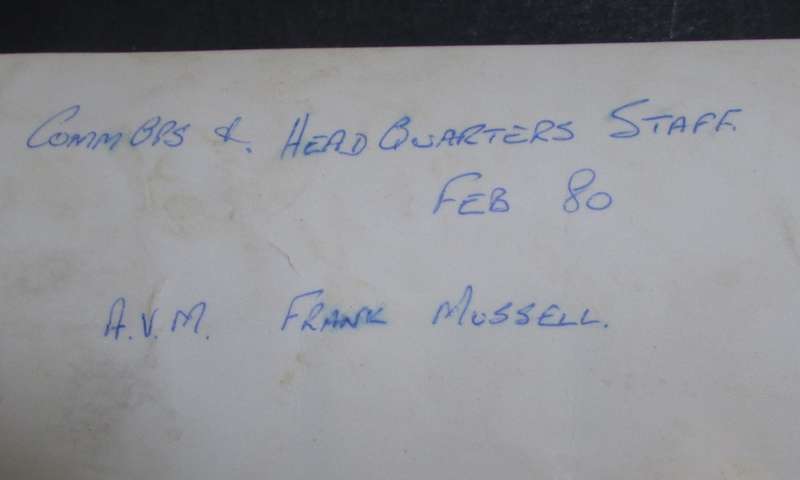 COMMBPS & HEADQUARTERS STAFF.
FEB 80
A.V.M. FRANK MUSSELL.